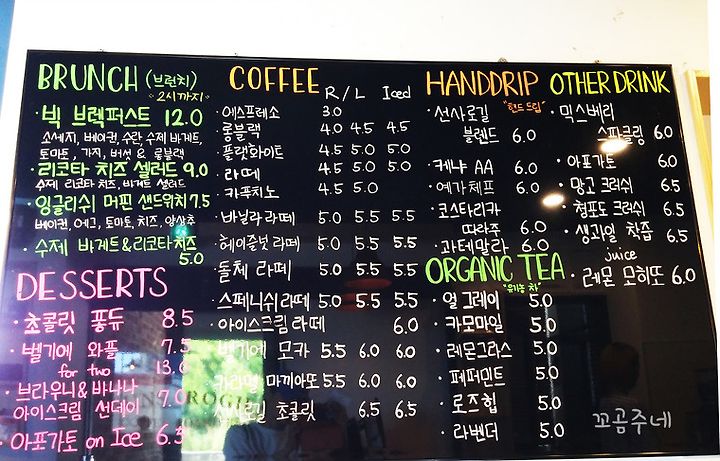 BRUNCH (브런치)
*2시까지*
· 빅 브렉퍼스트 12.0
소세지, 베이컨, 수란, 수제 바게트,
토마토, 가지, 버섯 & 롱블랙
· 리코타 치즈 샐러드 9.0
수제 리코타 치즈, 바게트 샐러드
· 잉글리쉬 머핀 샌드위치 7.5
베이컨, 에그, 토마토, 치즈, 양상추
· 수제 바게트&리코타치즈
5.0
DESSERTS
· 초콜릿 퐁듀 8.5
· 벨기에 와플 7.5
for two 13.0
· 브라우니&바나나
아이스크림 선데이 7.0
· 아포가토 on Ice 6.5
COFFEE R / L Iced
· 에스프레소 3.0
· 롱블랙 4.0 4.5 4.5
· 플랫화이트 4.5 5.0 5.0
· 라떼 4.5 5.0 5.0
· 카푸치노 4.5 5.0
· 바닐라 라떼 5.0 5.5 5.5
· 헤이즐넛 라떼 5.0 5.5 5.5
· 돌체 라떼 5.0 5.5 5.5
· 스페니쉬 라떼 5.0 5.5 5.5
· 아이스크림 라떼 6.0
· 벨기에 모카 5.5 6.0 6.0
· 카라멜 마끼아또 5.5 6.0 6.0
· 선사로길 초콜릿 6.5 6.5
HANDDRIP
"핸드드립"
· 선사로길
블렌드 6.0
· 케냐 AA 6.0
· 예가체프 6.0
· 코스타리카
따라주 6.0
· 과테말라 6.0
ORGANIC TEA
"유기농 차"
· 얼 그레이 5.0
· 카모마일 5.0
· 레몬그라스 5.0
· 페퍼민트 5.0
· 로즈힙 5.0
· 라벤더 5.0
OTHER DRINK
· 믹스베리
스파클링 6.0
· 아포가토 6.0
· 망고 크러쉬 6.5
· 청포도 크러쉬 6.5
· 생과일 착즙 6.5
juice
· 레몬 모히또 6.0
꼬곰주네